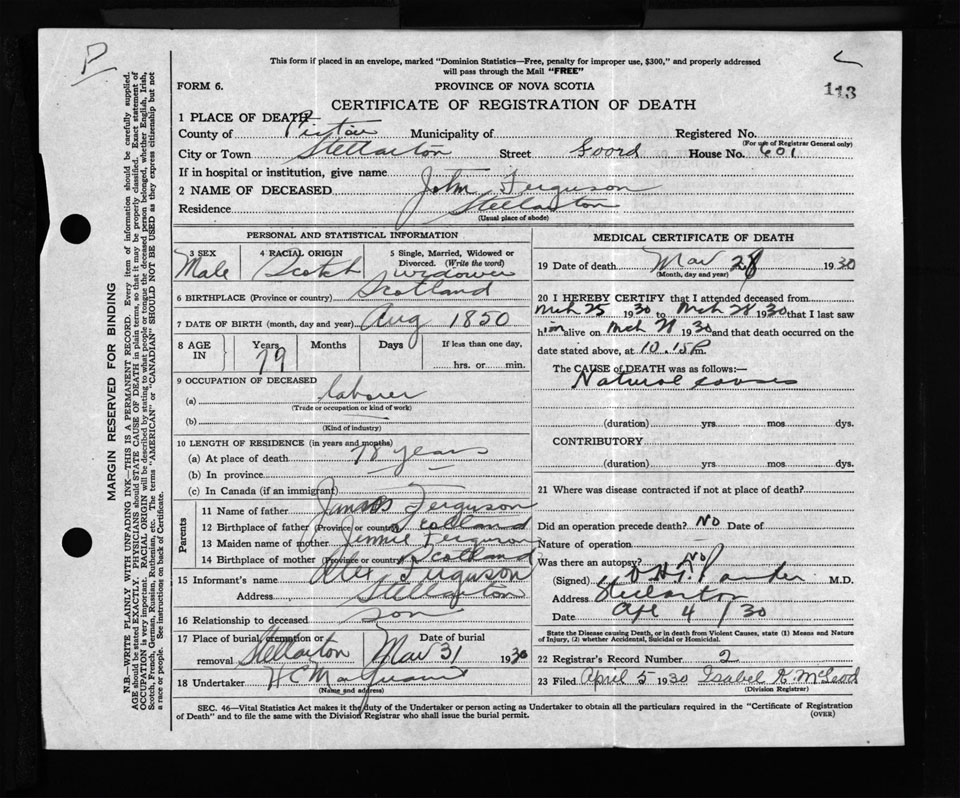 P
This form if placed in an envelope, marked "Dominion Statistics—Free, penalty for improper use, $300," and properly addressed
will pass through the Mail "FREE"
113
FORM 6.
PROVINCE OF NOVA SCOTIA
CERTIFICATE OF REGISTRATION OF DEATH
1 PLACE OF DEATH
County of Pictou Municipality of Registered No.
(For use of Registrar General only)
City or Town Stellarton Street Foord House No. 601
If in hospital or institution, give name
2 NAME OF DECEASED John Ferguson
Residence Stellarton
(Usual place of abode)
PERSONAL AND STATISTICAL INFORMATION
3 SEX 4 RACIAL ORIGIN 5 Single, Married, Widowed or
Divorced. (Write the word)
Male Scotch widower
6 BIRTHPLACE (Province or country) Scotland
7 DATE OF BIRTH (month, day and year) Aug 1850
8 AGE IN Years 79 Months Days If less than one day,
hrs. or min.
9 OCCUPATION OF DECEASED
(a) laborer
(Trade or occupation or kind of work)
(b)
(Kind of industry)
10 LENGTH OF RESIDENCE (in years and months)
(a) At place of death 78 years
(b) In province
(c) In Canada (if an immigrant)
Parents
11 Name of father James Ferguson
12 Birthplace of father (Province or country) Scotland
13 Maiden name of mother Jennie Ferguson
14 Birthplace of mother (Province or country) Scotland
15 Informant's name Alex Ferguson
Address Stellarton
16 Relationship to deceased son
17 Place of burial, cremation or removal Stellarton Date of burial Mar 31 1930
18 Undertaker H C
(Name and address)
MEDICAL CERTIFICATE OF DEATH
19 Date of death Mar 28 1930
(Month, day and year)
20 I HEREBY CERTIFY that I attended deceased from
Mch 25 1930 to Mch 28 1930 that I last saw
him alive on Mch 1930 and that death occurred on the
date stated above, at 10.15 P.m.
The CAUSE of DEATH was as follows:
Natural causes
(duration) yrs mos dys.
CONTRIBUTORY
(duration) yrs mos dys.
21 Where was disease contracted if not at place of death?
Did an operation precede death? No Date of
Nature of operation
Was there an autopsy? No
(Signed) M.D.
Address Stellarton
Date Apl 4 / 30
State the Disease causing Death, or in death from Violent Causes, state (1) Means and Nature
of Injury, (2) whether Accidental, Suicidal or Homicidal.
22 Registrar's Record Number 2
23 Filed April 5 1930 Isabel K. McLeod
(Division Registrar)
SEC. 46—Vital Statistics Act makes it the duty of the Undertaker or person acting as Undertaker to obtain all the particulars required in the "Certificate of Registration
of Death" and to file the same with the Division Registrar who shall issue the burial permit.
(OVER)
MARGIN RESERVED FOR BINDING
N.B.—WRITE PLAINLY WITH UNFADING INK—THIS IS A PERMANENT RECORD. Every item of information should be carefully supplied.
AGE should be stated EXACTLY. PHYSICIANS should STATE CAUSE OF DEATH in plain terms, so that it may be properly classified. Exact statement of
OCCUPATION is very important. RACIAL ORIGIN will be described by stating to what people or tongue the deceased person belonged, whether English, Irish,
Scotch, French, German, Russian, Ruthenian, etc. The terms "AMERICAN" or "CANADIAN" SHOULD NOT BE USED as they express citizenship but not
a race or people. See instructions on back of Certificate.